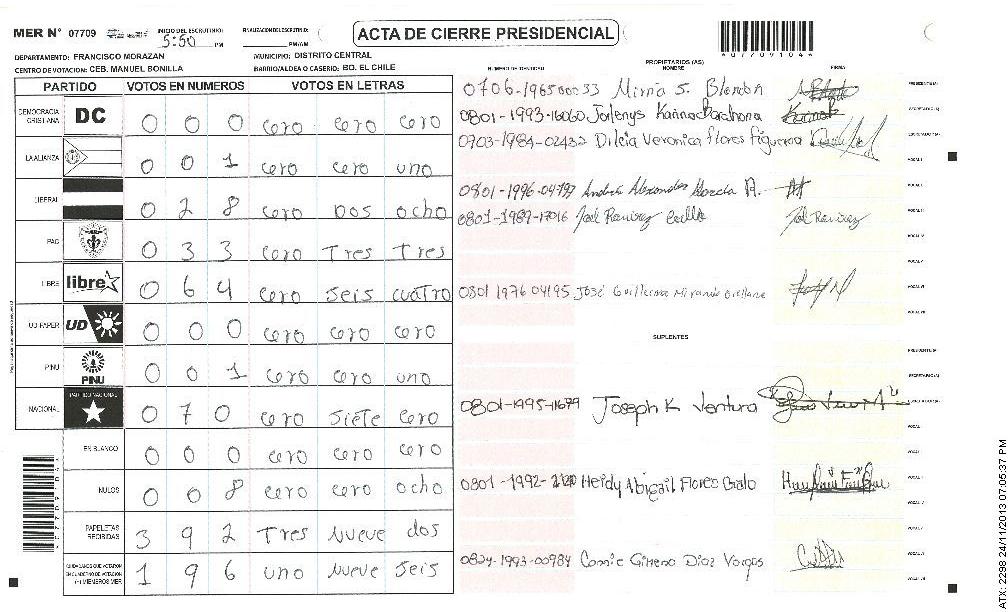 MER N° 07709 INICIO DEL ESCRUTINIO: 5:50 PM FINALIZACION DEL ESCRUTINIO: PM/AM
ACTA DE CIERRE PRESIDENCIAL
*07709104*
DEPARTAMENTO: FRANCISCO MORAZAN MUNICIPIO: DISTRITO CENTRAL
CENTRO DE VOTACION: CEB. MANUEL BONILLA BARRIO/ALDEA O CASERIO: BO. EL CHILE
NUMERO DE IDENTIDAD PROPIETARIOS (AS) NOMBRE FIRMA
PARTIDO VOTOS EN NUMEROS VOTOS EN LETRAS
DEMOCRACIA CRISTIANA DC 0 0 0 cero cero cero
LA ALIANZA 0 0 1 cero cero uno
LIBERAL 0 2 8 cero Dos ocho
PAC 0 3 3 cero Tres Tres
LIBRE libre 0 6 4 cero seis cuatro
UD FAPER UD 0 0 0 cero cero cero
PINU PINU 0 0 1 cero cero uno
NACIONAL PARTIDO NACIONAL 0 7 0 cero siete cero
EN BLANCO 0 0 0 cero cero cero
NULOS 0 0 8 cero cero ocho
PAPELETAS RECIBIDAS 3 9 2 Tres Nueve dos
CIUDADANOS QUE VOTARON EN CUADERNO DE VOTACION (+) MIEMBROS MER 1 9 6 uno Nueve seis
0706-1965 00033 Mirna S.
0801-1993-16060 Jorlenys Karina Barahona
0703-1984-02432 Dilcia Veronica Flores Figueroa
0801-1996-04797 Andrés Alexander A.
0801-1989-17016 Joel Ramirez Joel Ramirez
0801 1976 04195 José Guillermo Miranda Orellana
SUPLENTES
0801-1995-11679 Joseph K Ventura
0801-1992- Heidy Abigail Flores
0824-1993-00984 Gimena Diaz Vargas
ATX: 2298 24/11/2013 07:05:37 PM